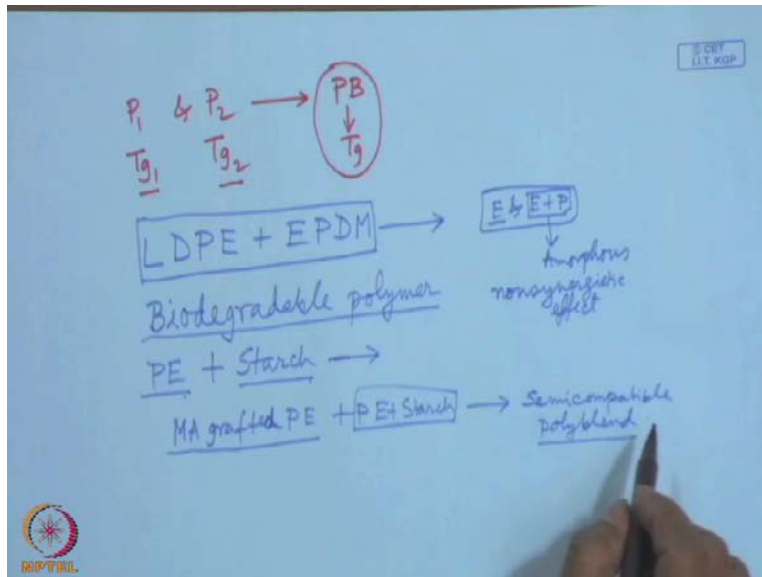 © CET
I.I.T. KGP
P₁ & P₂ → PB
Tg₁ Tg₂ ↓ Tg
LDPE + EPDM → E & E+P
↓
Amorphous
nonsynergistic
effect
Biodegradable polymer
PE + Starch →
MA grafted PE + PE+Starch → Semicompatible
polyblend
NPTEL